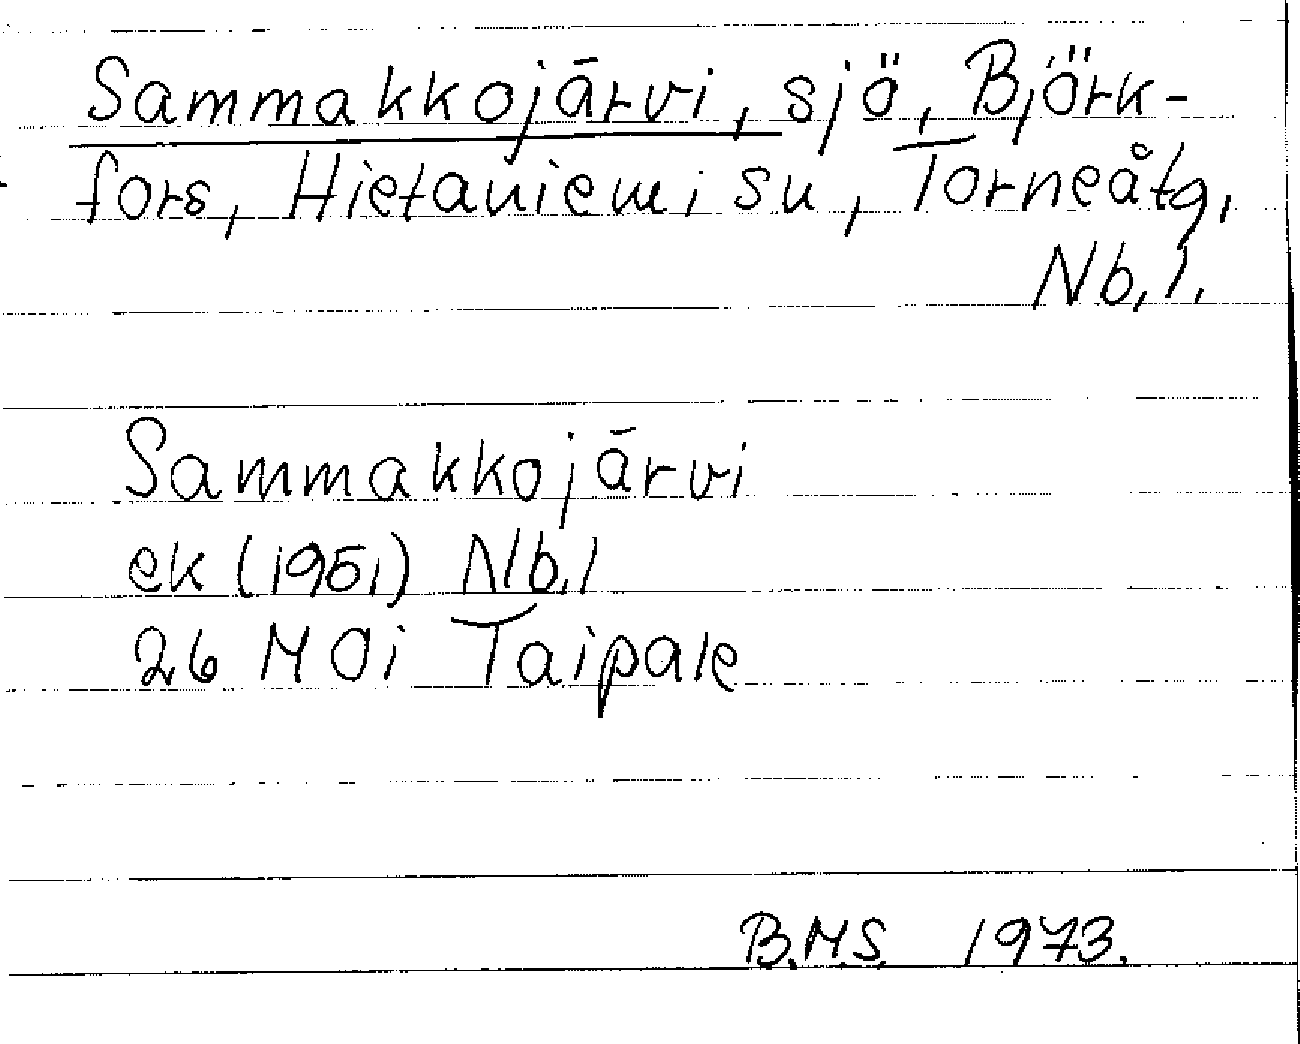 Sammakkojärvi, sjö, Björk-
fors, Hietaniemi sn, Torneåtg,
Nb. l.
Sammakkojärvi
ek (1951) Nb. l
26 M 0i Taipale
B.M.S. 1973.